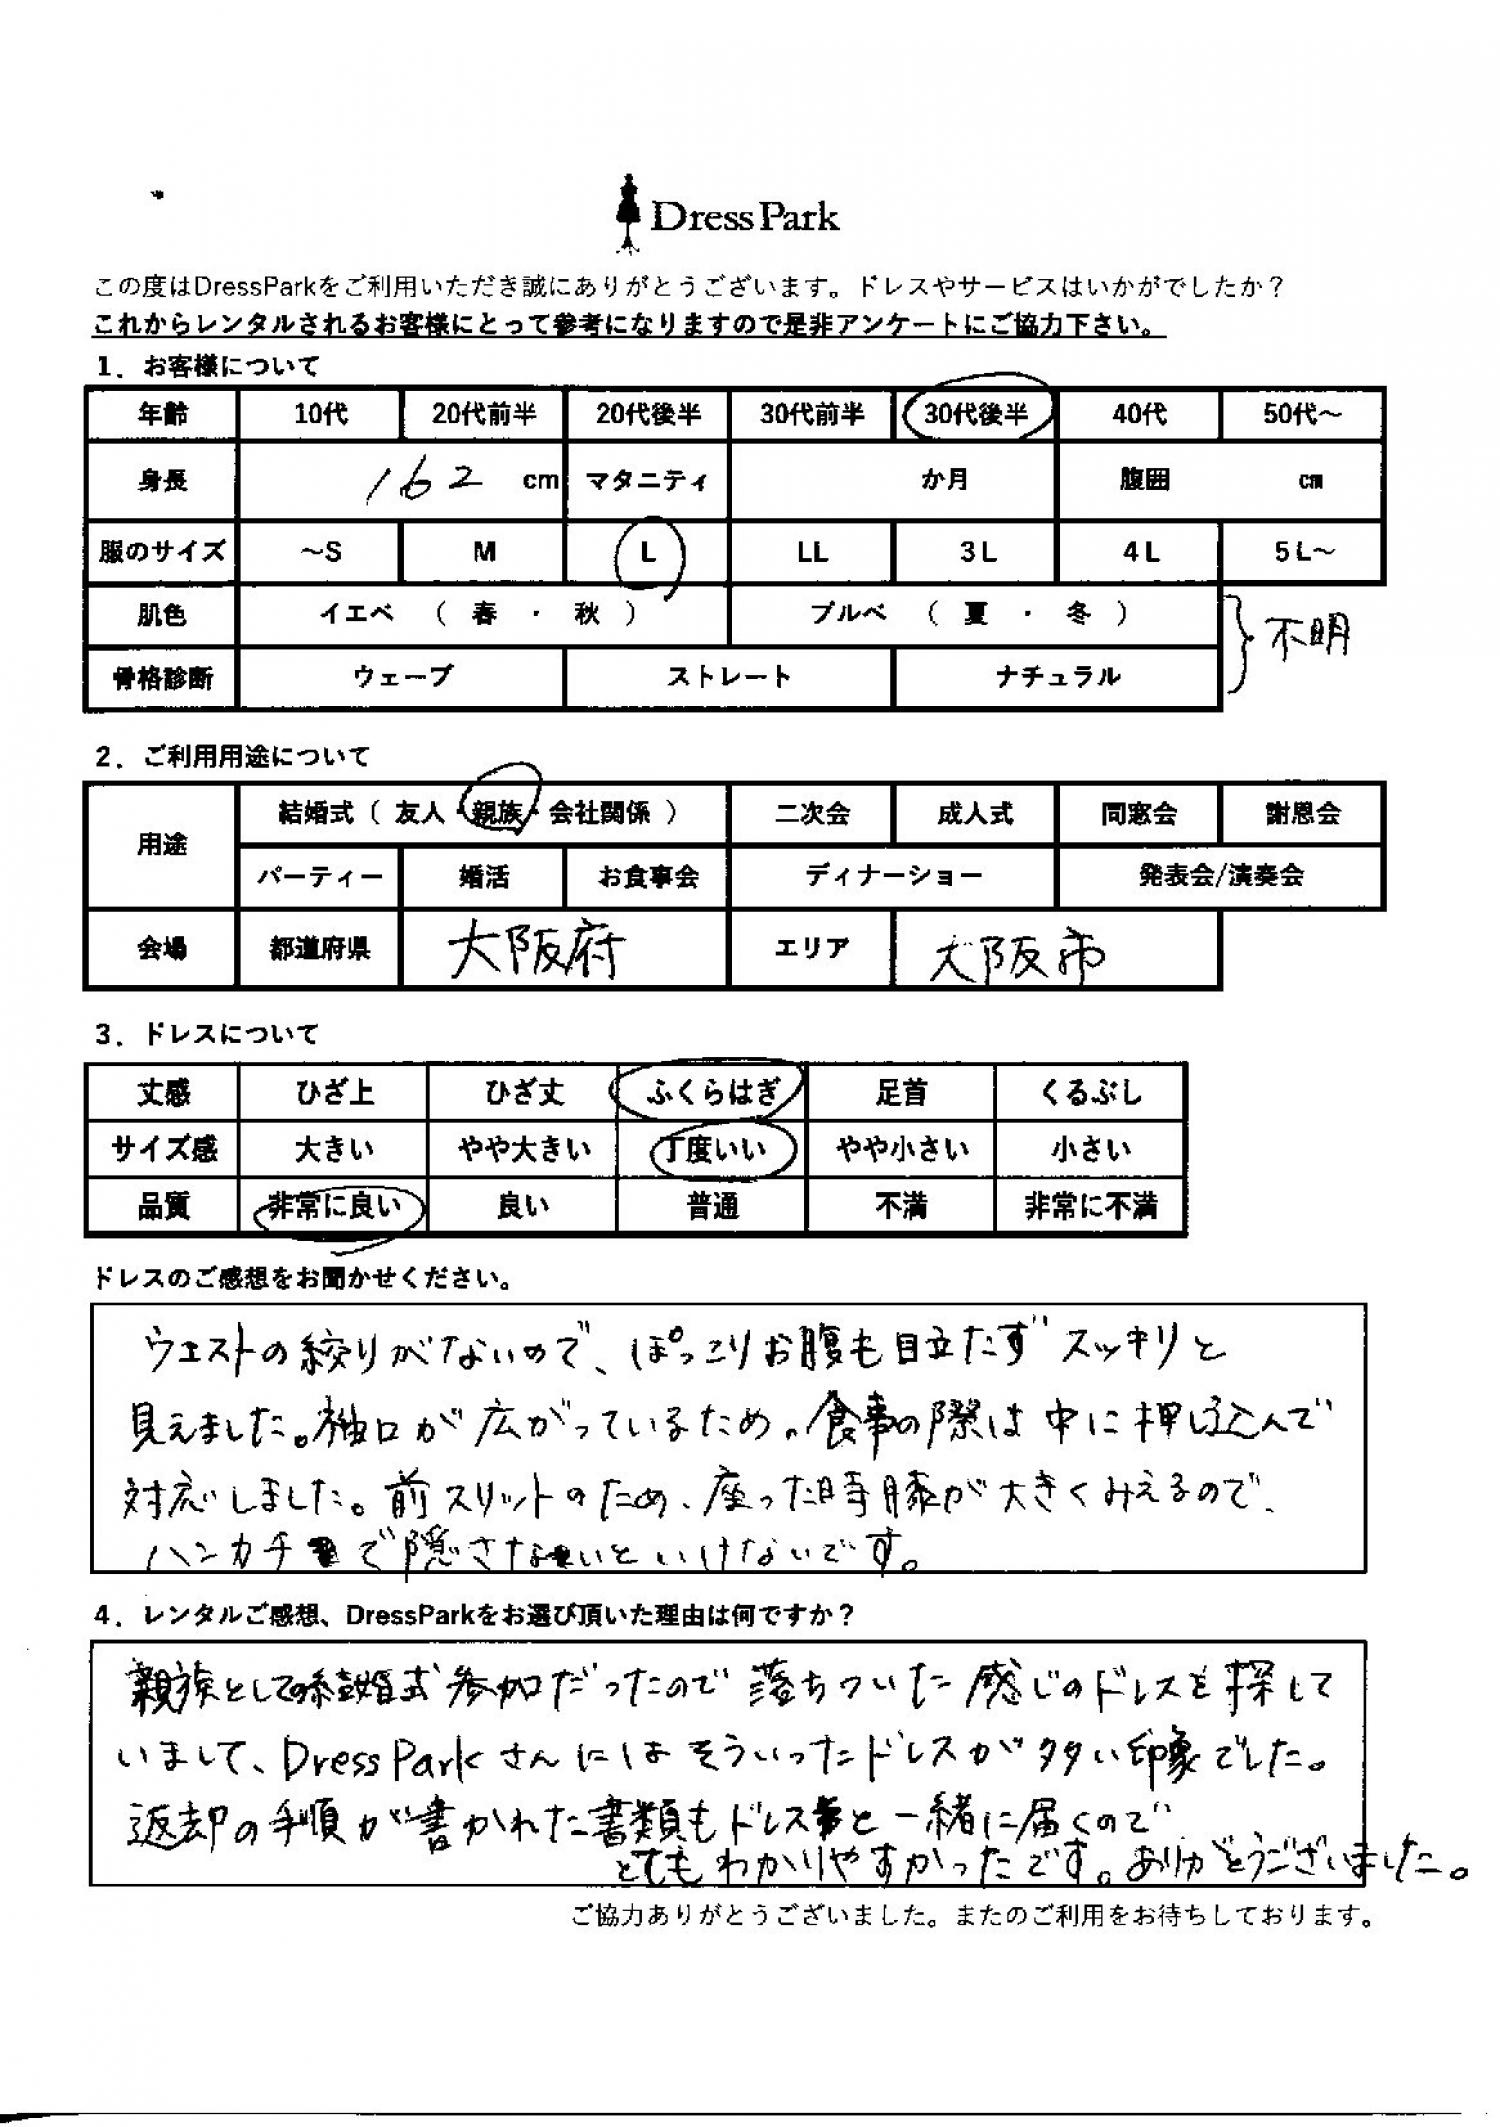 Dress Park
この度はDressParkをご利用いただき誠にありがとうございます。ドレスやサービスはいかがでしたか？
これからレンタルされるお客様にとって参考になりますので是非アンケートにご協力下さい。
1．お客様について
年齢 10代 20代前半 20代後半 30代前半 30代後半 40代 50代～
身長 162 cm マタニティ か月 腹囲 cm
服のサイズ ～S M L LL 3L 4L 5L～
肌色 イエベ （ 春 ・ 秋 ） ブルベ （ 夏 ・ 冬 ） 不明
骨格診断 ウェーブ ストレート ナチュラル
2．ご利用用途について
用途 結婚式（ 友人・親族・会社関係 ） 二次会 成人式 同窓会 謝恩会
パーティー 婚活 お食事会 ディナーショー 発表会/演奏会
会場 都道府県 大阪府 エリア 大阪市
3．ドレスについて
丈感 ひざ上 ひざ丈 ふくらはぎ 足首 くるぶし
サイズ感 大きい やや大きい 丁度いい やや小さい 小さい
品質 非常に良い 良い 普通 不満 非常に不満
ドレスのご感想をお聞かせください。
ウエストの絞りがないので、ぽっこりお腹も目立たずスッキリと
見えました。袖口が広がっているため。食事の際は中に押し込んで
対応しました。前スリットのため、座った時膝が大きくみえるので、
ハンカチで隠さないといけないです。
4．レンタルご感想、DressParkをお選び頂いた理由は何ですか？
親族としての結婚式参加だったので落ちついた感じのドレスを探して
いまして、Dress Parkさんにはそういったドレスが多い印象でした。
返却の手順が書かれた書類もドレスと一緒に届くので
とてもわかりやすかったです。ありがとうございました。
ご協力ありがとうございました。またのご利用をお待ちしております。